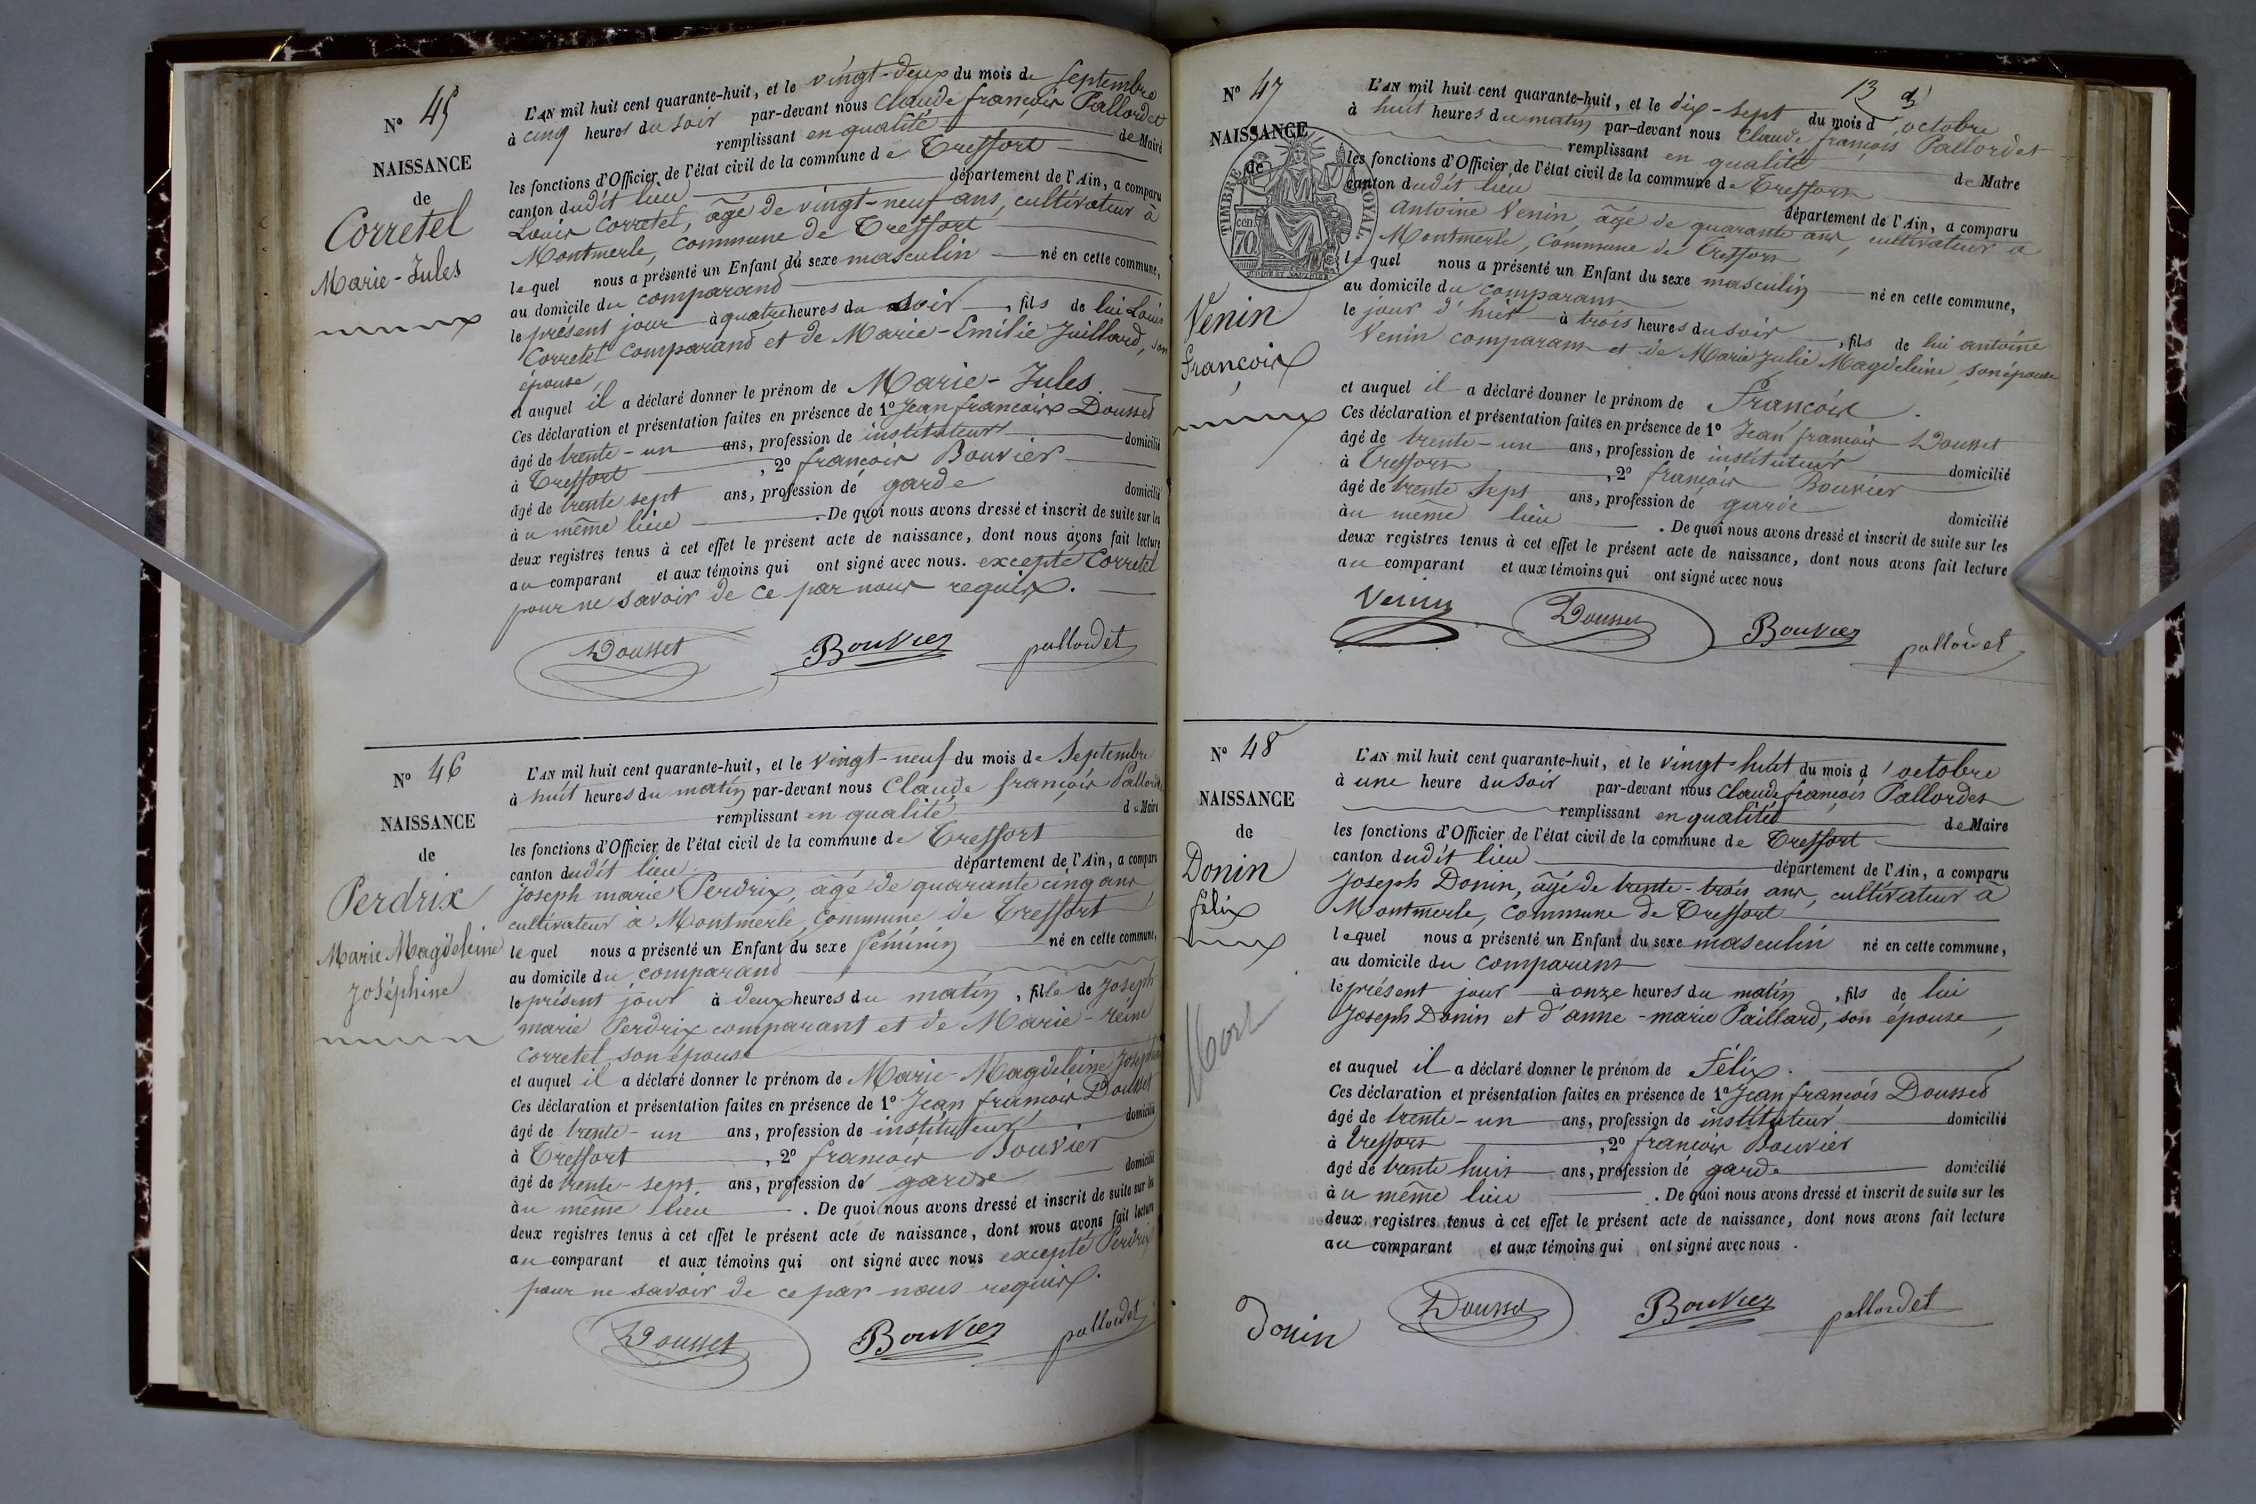 N° 45
NAISSANCE
de
Corretel
Marie-Jules
L'AN mil huit cent quarante-huit, et le vingt-deux du mois de Septembre
à cinq heures du soir par-devant nous Claude françois Pallordet
remplissant en qualité de Maire
les fonctions d'Officier de l'état civil de la commune de Treffort
canton dudit lieu département de l'Ain, a comparu
Louis Corretel, âgé de vingt-neuf ans, cultivateur à
Montmerle, commune de Treffort
lequel nous a présenté un Enfant du sexe masculin né en cette commune,
au domicile du comparand
le présent jour à quatre heures du soir, fils de lui Louis
Corretel comparand et de Marie-Emilie Juillard, son
épouse
et auquel il a déclaré donner le prénom de Marie-Jules
Ces déclaration et présentation faites en présence de 1° Jean françois Dousset
âgé de trente-un ans, profession de instituteur domicilié
à Treffort, 2° françois Bouvier
âgé de trente sept ans, profession de garde domicilié
au même lieu. De quoi nous avons dressé et inscrit de suite sur les
deux registres tenus à cet effet le présent acte de naissance, dont nous avons fait lecture
au comparant et aux témoins qui ont signé avec nous. excepté Corretel
pour ne savoir de ce par nous requis.
Dousset Bouvier pallordet
N° 46
NAISSANCE
de
Perdrix
Marie Magdeleine
Joséphine
L'AN mil huit cent quarante-huit, et le vingt-neuf du mois de Septembre
à huit heures du matin par-devant nous Claude françois Pallordet
remplissant en qualité de Maire
les fonctions d'Officier de l'état civil de la commune de Treffort
canton dudit lieu département de l'Ain, a comparu
Joseph marie Perdrix, âgé de quarante cinq ans,
cultivateur à Montmerle, commune de Treffort
lequel nous a présenté un Enfant du sexe féminin né en cette commune,
au domicile du comparand
le présent jour à deux heures du matin, fille de Joseph
marie Perdrix comparant et de Marie-reine
Corretel son épouse
et auquel il a déclaré donner le prénom de Marie-Magdeleine Joséphine
Ces déclaration et présentation faites en présence de 1° Jean françois Dousset
âgé de trente-un ans, profession de instituteur domicilié
à Treffort, 2° françois Bouvier
âgé de trente-sept ans, profession de garde domicilié
au même lieu. De quoi nous avons dressé et inscrit de suite sur les
deux registres tenus à cet effet le présent acte de naissance, dont nous avons fait lecture
au comparant et aux témoins qui ont signé avec nous excepté Perdrix
pour ne savoir de ce par nous requis.
Dousset Bouvier pallordet
13
N° 47
NAISSANCE
de
TIMBRE ROYAL
70 cen
Venin
françois
L'AN mil huit cent quarante-huit, et le dix-sept du mois d'octobre
à huit heures du matin par-devant nous Claude françois Pallordet
remplissant en qualité de Maire
les fonctions d'Officier de l'état civil de la commune de Treffort
canton dudit lieu département de l'Ain, a comparu
Antoine Venin, âgé de quarante ans, cultivateur à
Montmerle, commune de Treffort
lequel nous a présenté un Enfant du sexe masculin né en cette commune,
au domicile du comparant
le jour d'hier à trois heures du soir, fils de lui antoine
Venin comparant et de Marie Julie Magdeleine, son épouse
et auquel il a déclaré donner le prénom de François.
Ces déclaration et présentation faites en présence de 1° Jean françois Dousset
âgé de trente-un ans, profession de instituteur domicilié
à Treffort, 2° françois Bouvier
âgé de trente sept ans, profession de garde domicilié
au même lieu. De quoi nous avons dressé et inscrit de suite sur les
deux registres tenus à cet effet le présent acte de naissance, dont nous avons fait lecture
au comparant et aux témoins qui ont signé avec nous
Venin Dousset Bouvier pallordet
N° 48
NAISSANCE
de
Donin
félix
Mort
L'AN mil huit cent quarante-huit, et le vingt-huit du mois d'octobre
à une heure du soir par-devant nous Claude françois Pallordet
remplissant en qualité de Maire
les fonctions d'Officier de l'état civil de la commune de Treffort
canton dudit lieu département de l'Ain, a comparu
Joseph Donin, âgé de trente-trois ans, cultivateur à
Montmerle, commune de Treffort
lequel nous a présenté un Enfant du sexe masculin né en cette commune,
au domicile du comparant
le présent jour à onze heures du matin, fils de lui
Joseph Donin et d'anne-marie Paillard, son épouse,
et auquel il a déclaré donner le prénom de Félix.
Ces déclaration et présentation faites en présence de 1° Jean françois Dousset
âgé de trente-un ans, profession de instituteur domicilié
à Treffort, 2° françois Bouvier
âgé de trente huit ans, profession de garde domicilié
au même lieu. De quoi nous avons dressé et inscrit de suite sur les
deux registres tenus à cet effet le présent acte de naissance, dont nous avons fait lecture
au comparant et aux témoins qui ont signé avec nous.
Donin Dousset Bouvier pallordet